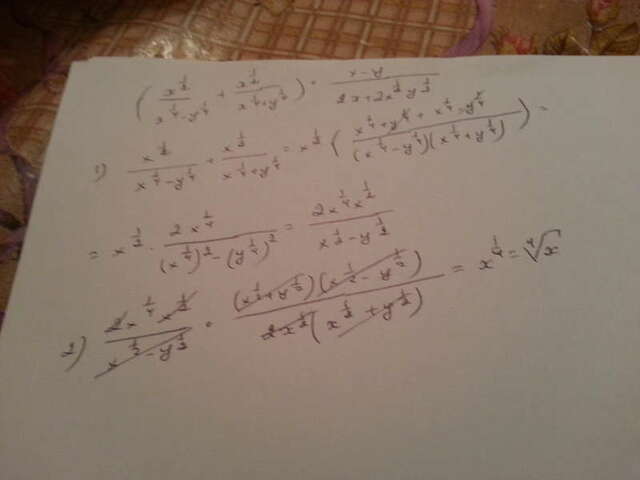 (x^{1/2}/(x^{1/4}-y^{1/4}) + x^{1/2}/(x^{1/4}+y^{1/4})) · (x-y)/(2x+2x^{1/2}y^{1/2})
1) x^{1/2}/(x^{1/4}-y^{1/4}) + x^{1/2}/(x^{1/4}+y^{1/4}) = x^{1/2}((x^{1/4}+y^{1/4}+x^{1/4}-y^{1/4})/((x^{1/4}-y^{1/4})(x^{1/4}+y^{1/4}))) =
= x^{1/2} · 2x^{1/4}/((x^{1/4})^2-(y^{1/4})^2) = 2x^{1/4}x^{1/2}/(x^{1/2}-y^{1/2})
2) 2x^{1/4}x^{1/2}/(x^{1/2}-y^{1/2}) · (x^{1/2}+y^{1/2})(x^{1/2}-y^{1/2})/(2x^{1/2}(x^{1/2}+y^{1/2})) = x^{1/4} = ⁴√x